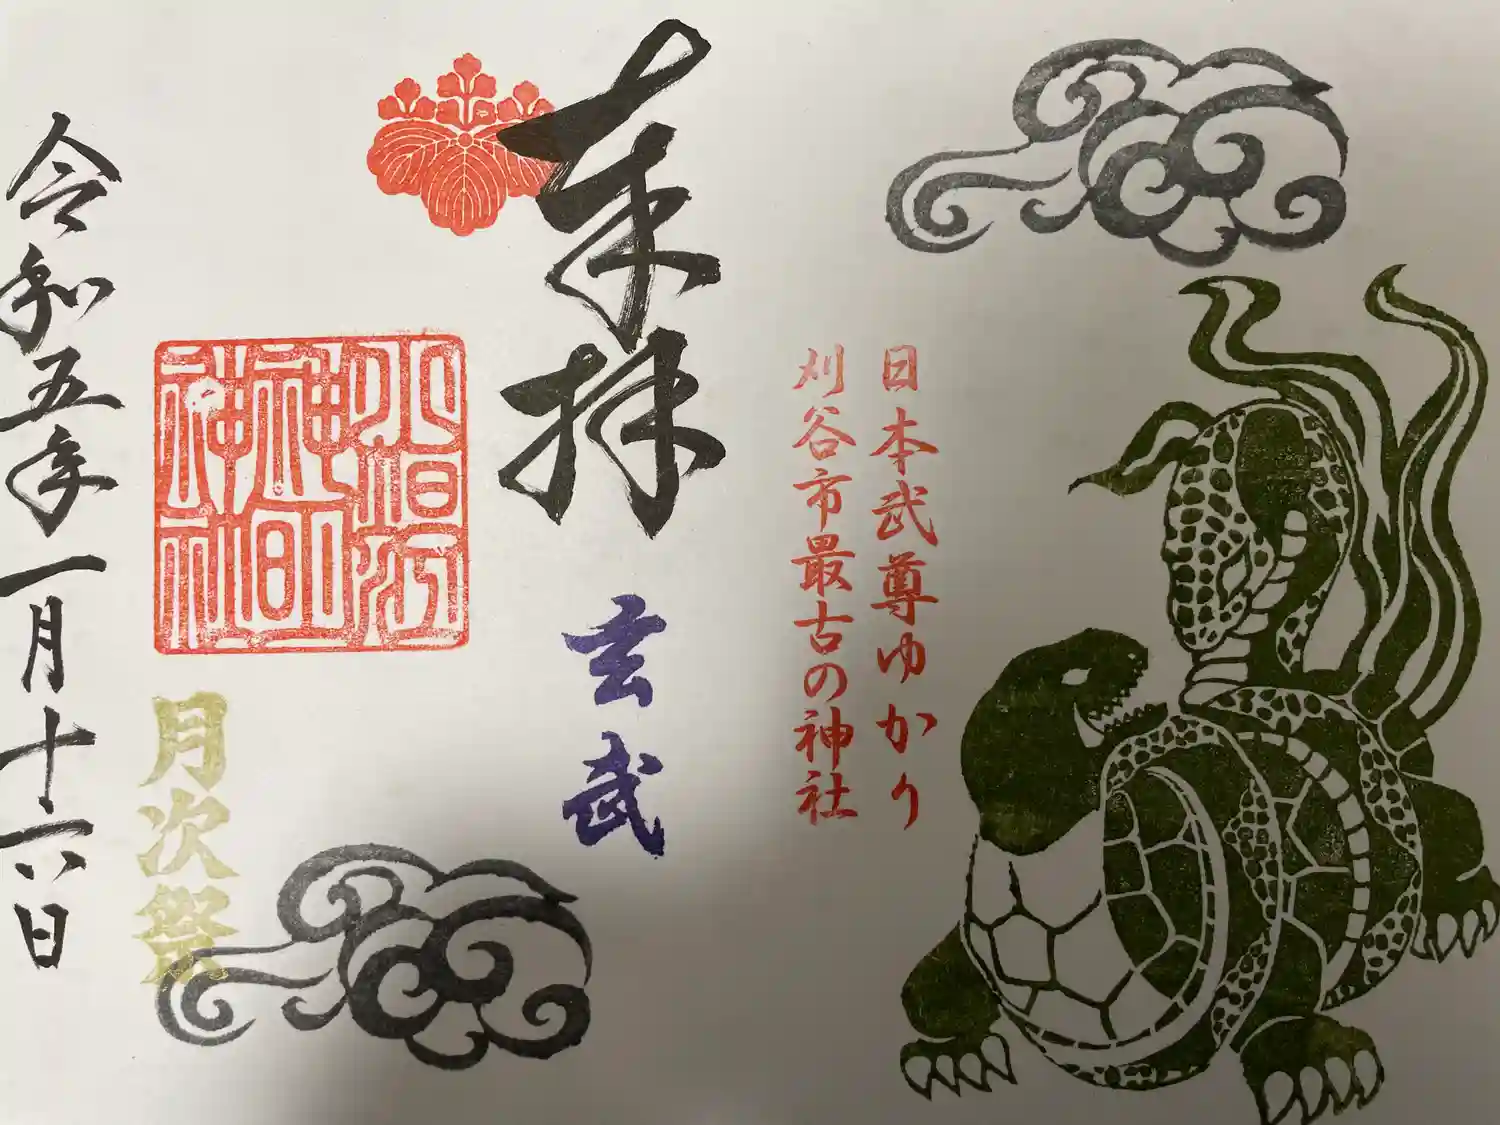 日本武尊ゆかり
刈谷市最古の神社
奉拝
玄武
小垣江
神明
神社
月次祭
令和五年一月十六日